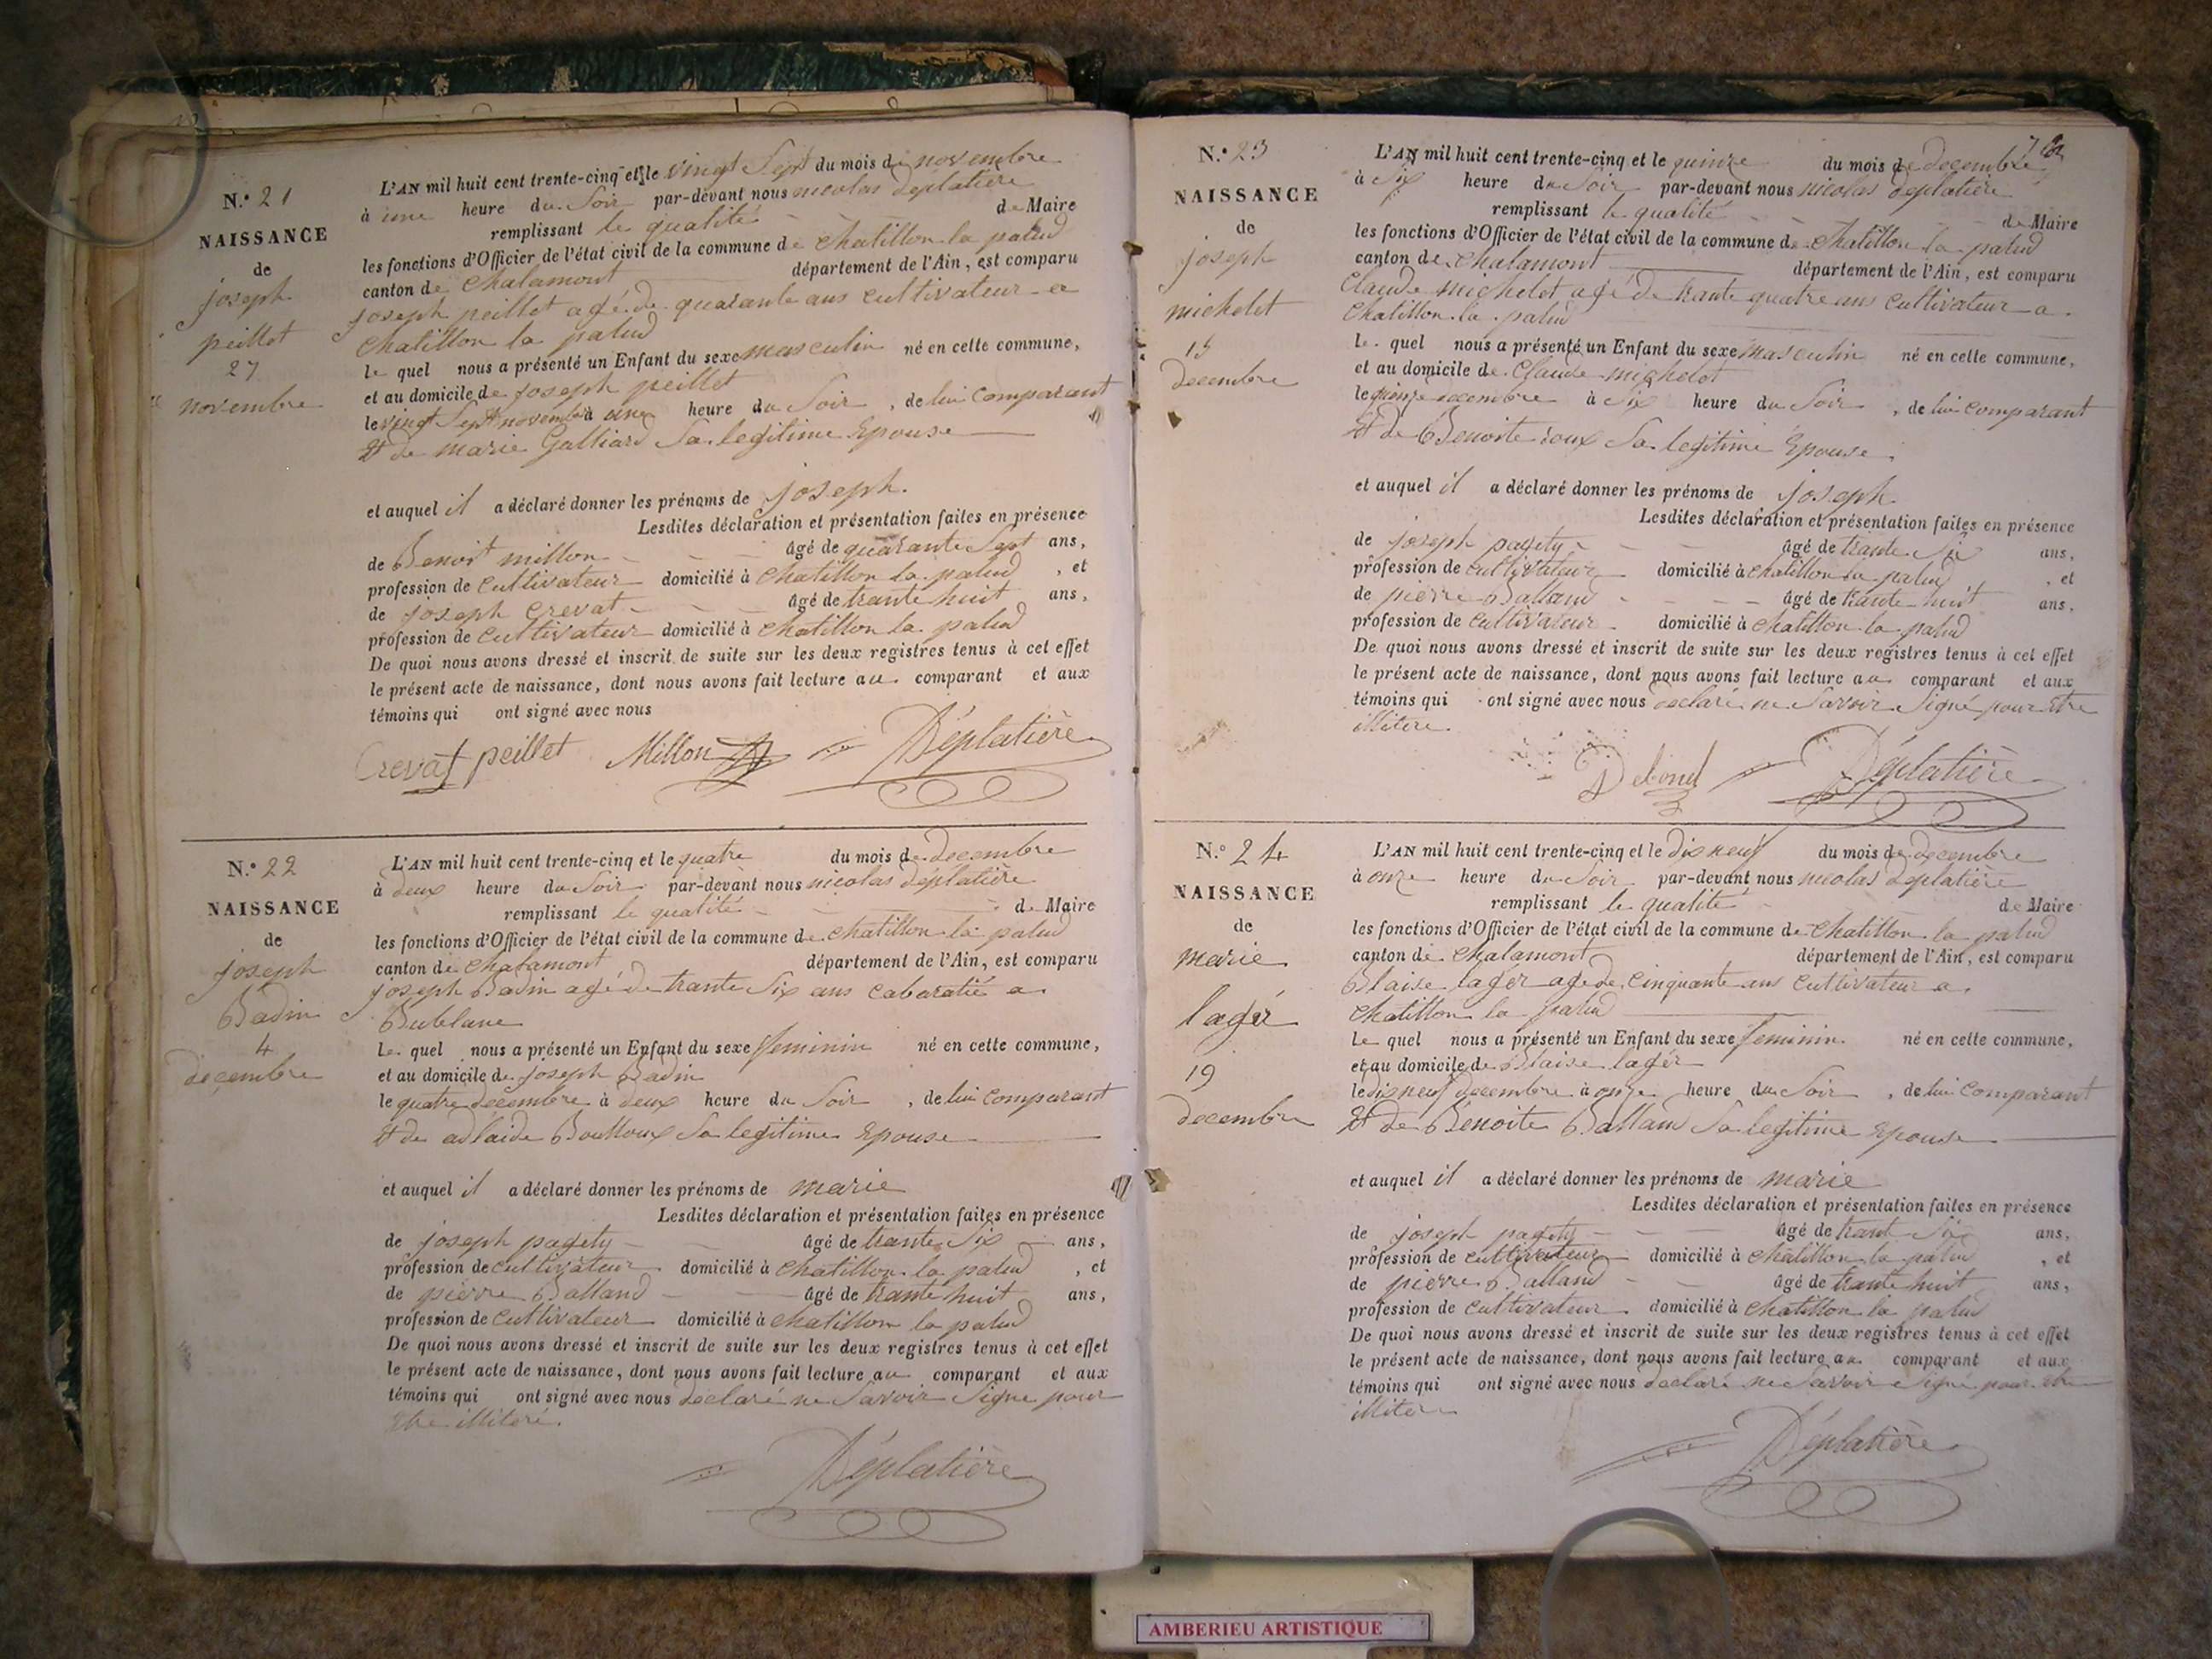 N.º 21
NAISSANCE
de
joseph
peillet
27
novembre
L'AN mil huit cent trente-cinq et le vingt Sept du mois de novembre
à une heure du Soir par-devant nous nicolas déplatière
remplissant le qualité de Maire
les fonctions d'Officier de l'état civil de la commune de chatillon la palud
canton de chalamont département de l'Ain, est comparu
joseph peillet agé de quarante ans cultivateur a
chatillon la palud
le quel nous a présenté un Enfant du sexe masculin né en cette commune,
et au domicile de joseph peillet
le vingt Sept novembre à une heure du Soir, de lui comparant
Et de marie Galliard Sa legitime Epouse
et auquel il a déclaré donner les prénoms de joseph.
Lesdites déclaration et présentation faites en présence
de Benoit millon âgé de quarante Sept ans,
profession de cultivateur domicilié à chatillon la palud, et
de joseph crevat âgé de trante huit ans,
profession de cultivateur domicilié à chatillon la palud
De quoi nous avons dressé et inscrit de suite sur les deux registres tenus à cet effet
le présent acte de naissance, dont nous avons fait lecture au comparant et aux
témoins qui ont signé avec nous
Crevat peillet Millon Déplatière
N.º 22
NAISSANCE
de
joseph
Badin
4
decembre
L'AN mil huit cent trente-cinq et le quatre du mois de decembre
à deux heure du Soir par-devant nous nicolas déplatière
remplissant le qualité de Maire
les fonctions d'Officier de l'état civil de la commune de chatillon la palud
canton de chalamont département de l'Ain, est comparu
joseph Badin agé de trante Six ans cabaratié a
Bublane
Le quel nous a présenté un Enfant du sexe feminin né en cette commune,
et au domicile de joseph Badin
le quatre decembre à deux heure du Soir, de lui comparant
Et de adlaide Bouttoux Sa legitime Epouse
et auquel il a déclaré donner les prénoms de marie
Lesdites déclaration et présentation faites en présence
de joseph pagety âgé de trante Six ans,
profession de cultivateur domicilié à chatillon la palud, et
de pierre Balland âgé de trante huit ans,
profession de cultivateur domicilié à chatillon la palud
De quoi nous avons dressé et inscrit de suite sur les deux registres tenus à cet effet
le présent acte de naissance, dont nous avons fait lecture au comparant et aux
témoins qui ont signé avec nous declaré ne Savoir Signe pour
Etre illiteré.
Déplatière
N.º 23
NAISSANCE
de
joseph
michelet
15
decembre
L'AN mil huit cent trente-cinq et le quinze du mois de decembre
à Six heure du Soir par-devant nous nicolas deplatière
remplissant le qualité de Maire
les fonctions d'Officier de l'état civil de la commune de chatillon la palud
canton de chalamont département de l'Ain, est comparu
Claude michelet agé de trante quatre ans cultivateur a
chatillon la palud
le quel nous a présenté un Enfant du sexe masculin né en cette commune,
et au domicile de Claude michelet
le quinze decembre à Six heure du Soir, de lui comparant
Et de Benoite roux Sa legitime Epouse.
et auquel il a déclaré donner les prénoms de joseph.
Lesdites déclaration et présentation faites en présence
de joseph pagety âgé de trante Six ans,
profession de cultivateur domicilié à chatillon la palud, et
de pierre Balland âgé de trante huit ans,
profession de cultivateur domicilié à chatillon la palud
De quoi nous avons dressé et inscrit de suite sur les deux registres tenus à cet effet
le présent acte de naissance, dont nous avons fait lecture au comparant et aux
témoins qui ont signé avec nous declaré ne Savoir Signé pour Etre
illitere.
Debond Déplatière
N.º 24
NAISSANCE
de
marie
lagér
19
decembre
L'AN mil huit cent trente-cinq et le dix neuf du mois de decembre
à onze heure du Soir par-devant nous nicolas deplatière
remplissant le qualité de Maire
les fonctions d'Officier de l'état civil de la commune de chatillon la palud
canton de chalamont département de l'Ain, est comparu
Blaise lager age de cinquante ans cultivateur a
chatillon la palud
Le quel nous a présenté un Enfant du sexe feminin né en cette commune,
et au domicile de Blaise lagér
le dix neuf decembre à onze heure du Soir, de lui comparant
Et de Benoite Balland Sa legitime Epouse
et auquel il a déclaré donner les prénoms de marie
Lesdites déclaration et présentation faites en présence
de joseph pagety âgé de trant Six ans,
profession de cultivateur domicilié à chatillon la palud, et
de pierre Balland âgé de trante huit ans,
profession de cultivateur domicilié à chatillon la palud
De quoi nous avons dressé et inscrit de suite sur les deux registres tenus à cet effet
le présent acte de naissance, dont nous avons fait lecture au comparant et aux
témoins qui ont signé avec nous declaré ne Savoir Signé pour etre
illitere
Déplatière
AMBERIEU ARTISTIQUE